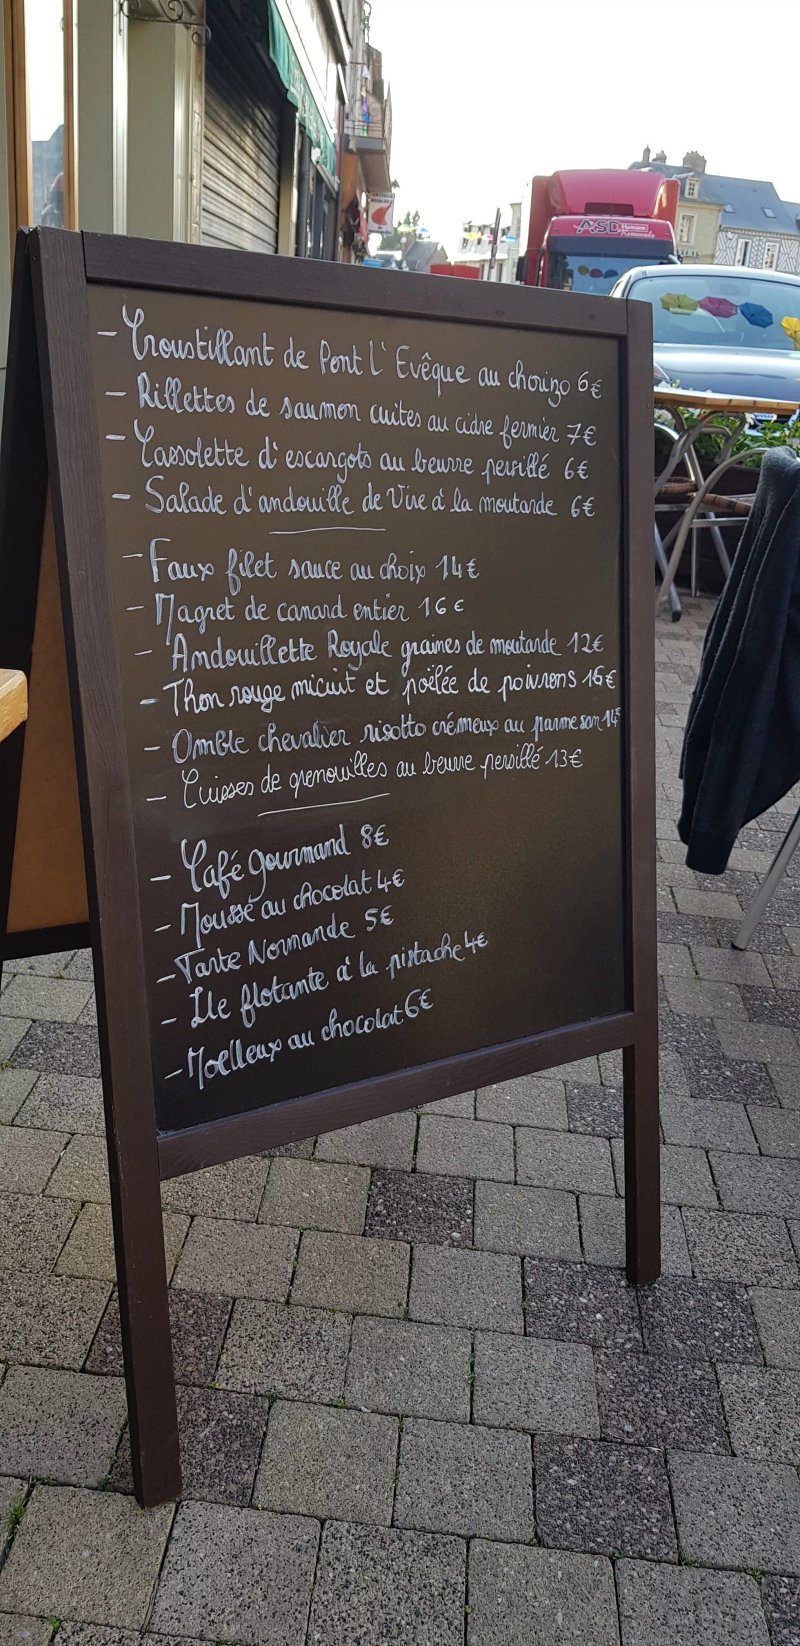 ASD
- Croustillant de Pont L'Evêque au chorizo 6€
- Rillettes de saumon cuites au cidre fermier 7€
- Cassolette d'escargots au beurre persillé 6€
- Salade d'andouille de Vire à la moutarde 6€
- Faux filet sauce au choix 14€
- Magret de canard entier 16€
- Andouillette Royale graines de moutarde 12€
- Thon rouge micuit et poêlée de poivrons 16€
- Omble chevalier risotto crémeux au parmesan 14€
- Cuisses de grenouilles au beurre persillé 13€
- Café gourmand 8€
- Mousse au chocolat 4€
- Tarte Normande 5€
- Ile flotante à la pistache 4€
- Moelleux au chocolat 6€